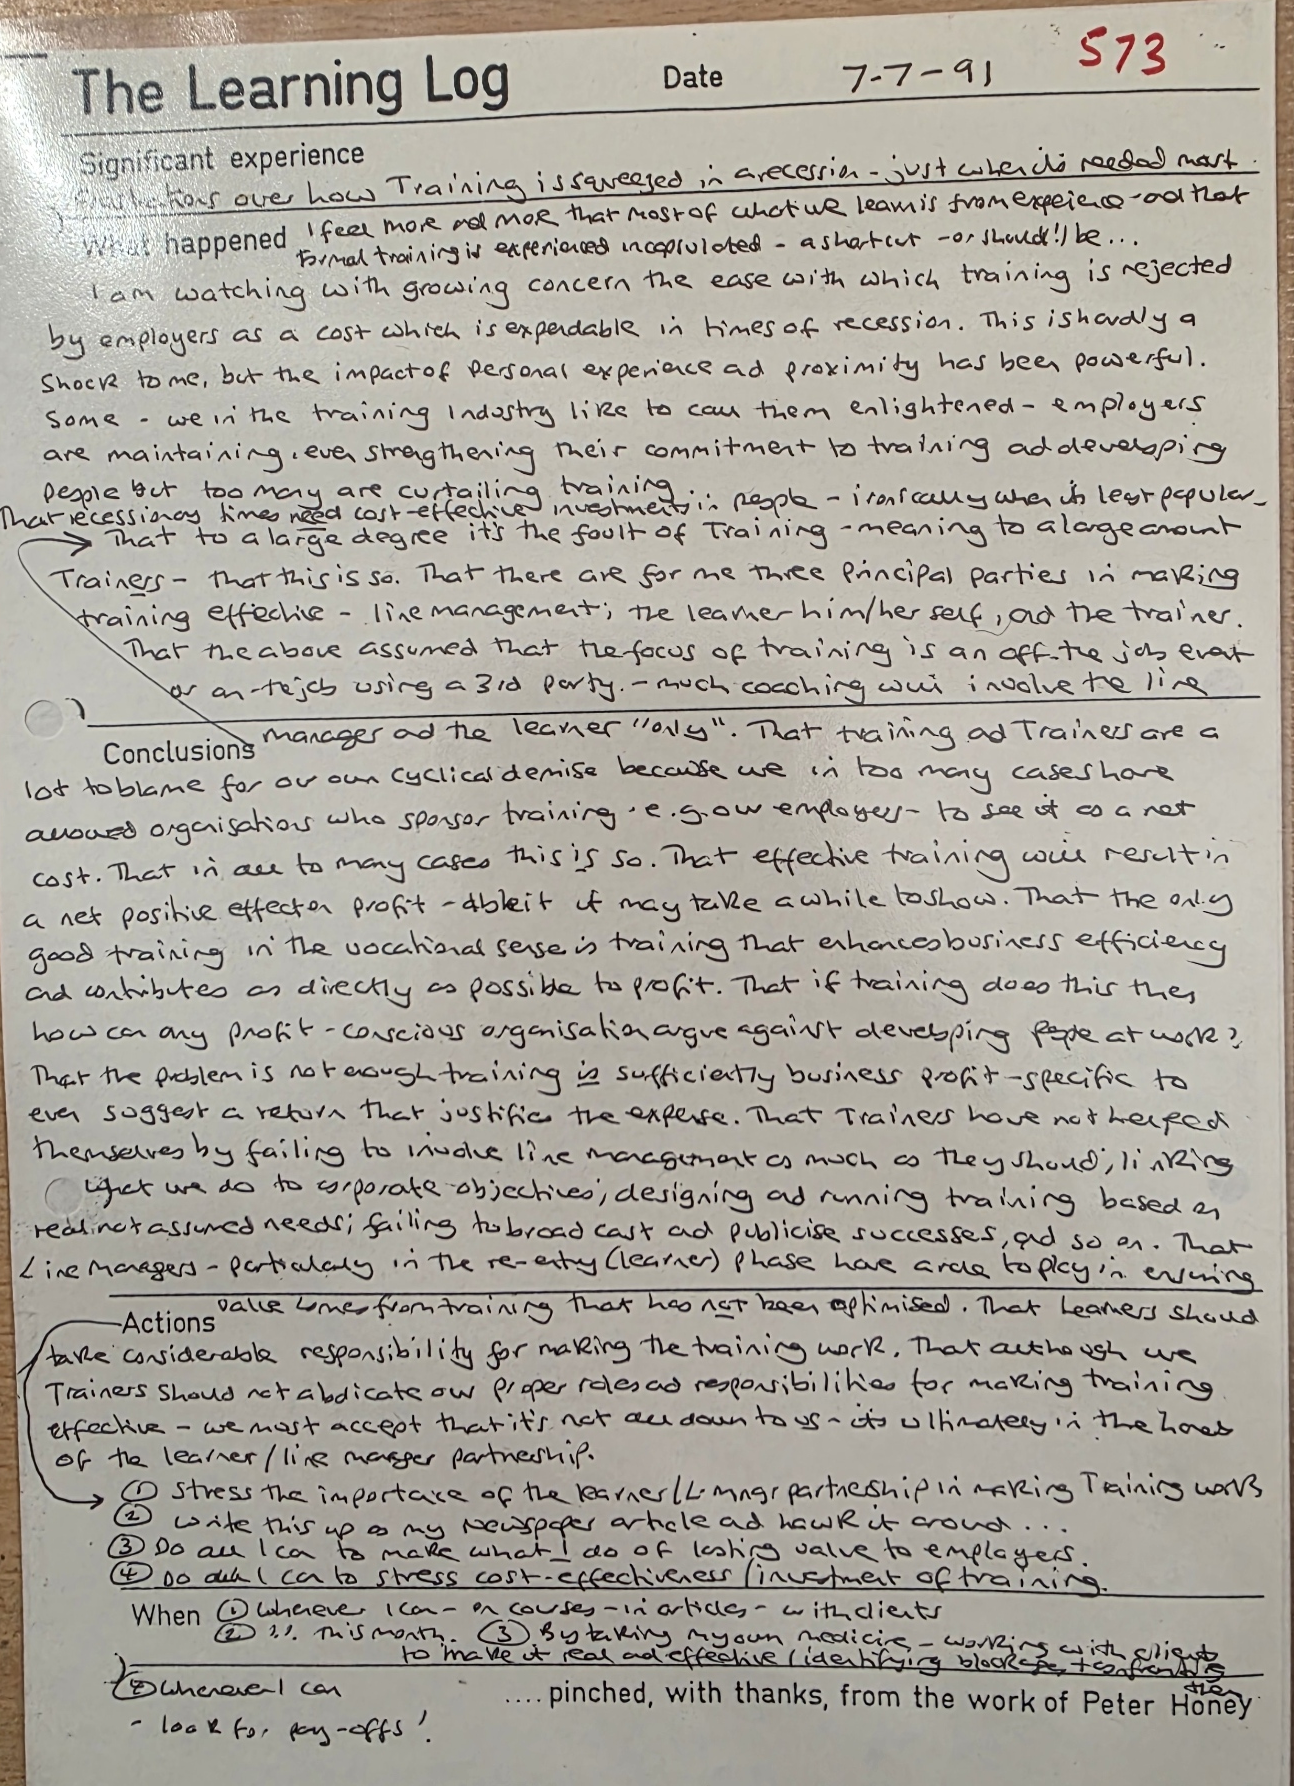 The Learning Log Date 7-7-91 573
Significant experience
Frustrations over how Training is squeezed in a recession - just when it's needed most.
What happened I feel more and more that most of what we learn is from experience - and that
formal training is experienced incapsulated - a shortcut - or should(!) be...
I am watching with growing concern the ease with which training is rejected
by employers as a cost which is expendable in times of recession. This is hardly a
shock to me, but the impact of personal experience and proximity has been powerful.
Some - we in the training industry like to call them enlightened - employers
are maintaining, even strengthening their commitment to training and developing
people but too many are curtailing training...
That recessionary times need cost-effective investments in people - ironically when its least popular -
That to a large degree it's the fault of Training - meaning to a large amount
Trainers - that this is so. That there are for me three principal parties in making
training effective - line management; the learner him/her self, and the trainer.
That the above assumed that the focus of training is an off-the job event
or on-te job using a 3rd party. - much coaching will involve the line
Conclusions manager and the learner "only". That training and Trainers are a
lot to blame for our own cyclical demise because we in too many cases have
allowed organisations who sponsor training - e.g. our employers - to see it as a net
cost. That in all to many cases this is so. That effective training will result in
a net positive effect on profit - albeit it may take a while to show. That the only
good training in the vocational sense is training that enhances business efficiency
and contributes as directly as possible to profit. That if training does this then
how can any profit-conscious organisation argue against developing people at work?
That the problem is not enough training is sufficiently business profit-specific to
even suggest a return that justifies the expense. That Trainers have not helped
themselves by failing to involve line management as much as they should; linking
what we do to corporate objectives; designing and running training based on
real not assumed needs; failing to broadcast and publicise successes, and so on. That
Line Managers - particularly in the re-entry (learner) phase have a role to play in ensuring
value comes from training that has not been optimised. That Learners should
Actions
take considerable responsibility for making the training work. That although we
Trainers should not abdicate our proper roles and responsibilities for making training
effective - we must accept that it's not all down to us - its ultimately in the hands
of the learner/line manager partnership.
① Stress the importance of the learner/L. mngr partnership in making Training work
② Write this up as my Newspaper article and hawk it around...
③ Do all I can to make what I do of lasting value to employers.
④ Do all I can to stress cost-effectiveness/investment of training.
When ① Wherever I can - on courses - in articles - with clients
② !!. This month. ③ By taking my own medicine - working with clients
to make it real and effective (identifying blockages + confronting
them
wherever I can
.... pinched, with thanks, from the work of Peter Honey
- look for pay-offs!